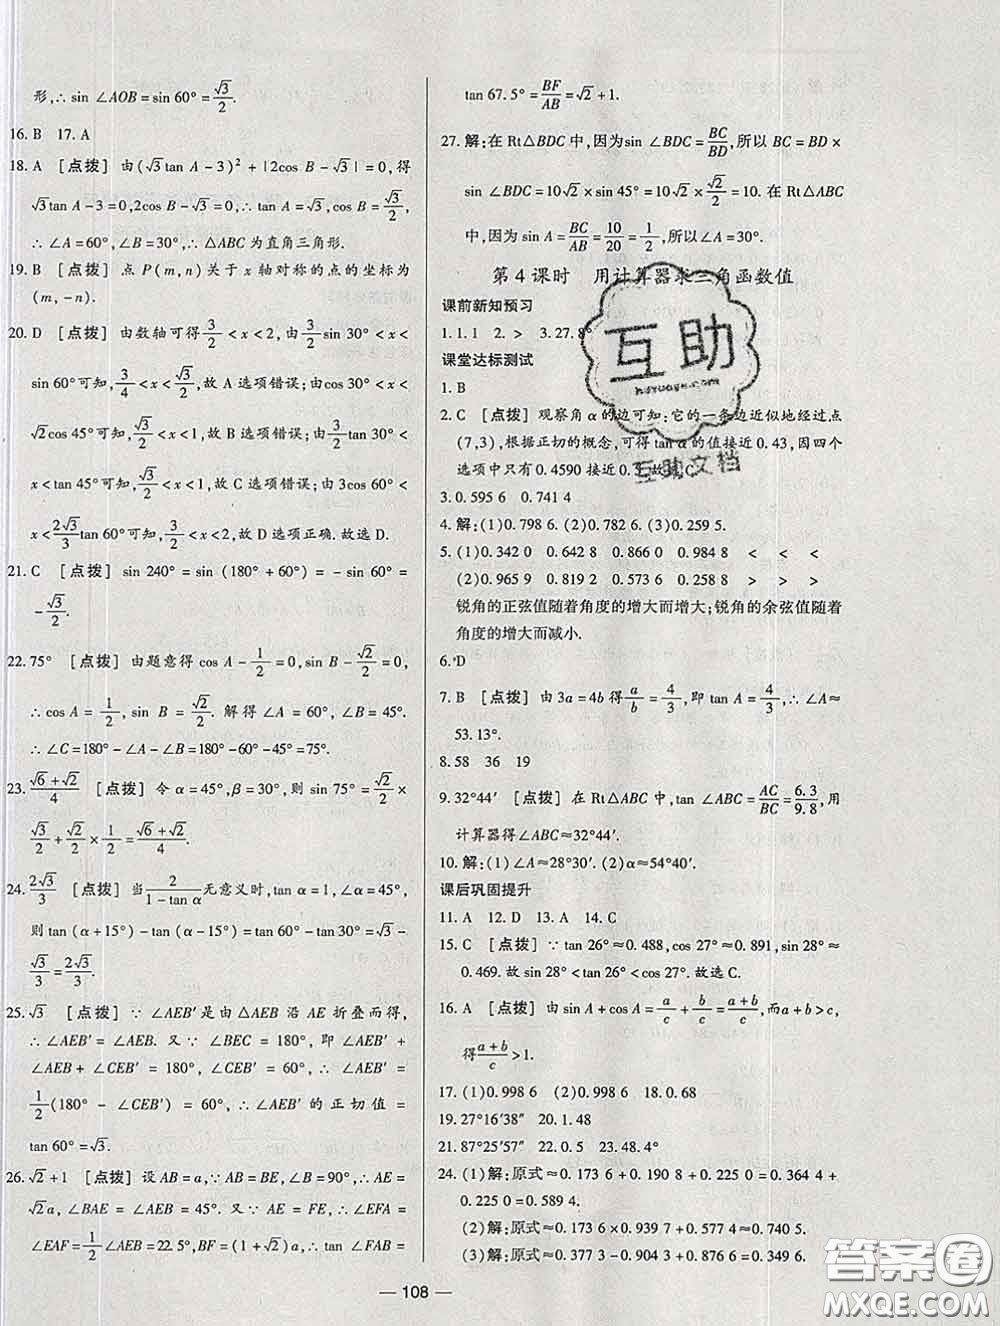 形,∴sin ∠AOB=sin 60°=√3/2.
16. B 17. A
18. A [点拨] 由(√3tan A-3)²+|2cos B-√3|=0,得
√3tan A-3=0,2cos B-√3=0,∴tan A=√3,cos B=√3/2,
∴∠A=60°,∠B=30°,∴△ABC为直角三角形.
19. B [点拨] 点 P(m,n)关于 x 轴对称的点的坐标为
(m,-n).
20. D [点拨] 由数轴可得3/2<x<2,因为sin 30°<x<
sin 60°可知,3/4<x<√3/2,故 A 选项错误;由cos 30°<x<
√2cos 45°可知,√3/2<x<1,故 B 选项错误;由3/2tan 30°<
x<tan 45°可知,√3/2<x<1,故 C 选项错误;由3cos 60°<
x<2√3/3tan 60°可知,3/2<x<2,故 D 选项正确.故选 D.
21. C [点拨] sin 240°=sin (180°+60°)=-sin 60°=
-√3/2.
22. 75° [点拨] 由题意得 cos A-1/2=0,sin B-√2/2=0,
∴cos A=1/2,sin B=√2/2. 解得∠A=60°,∠B=45°.
∴∠C=180°-∠A-∠B=180°-60°-45°=75°.
23. (√6+√2)/4 [点拨] 令 α=45°,β=30°,则 sin 75°=√2/2×
√3/2+√2/2×1/2=(√6+√2)/4.
24. 2√3/3 [点拨] 当2/(1-tan α)无意义时,tan α=1,∠α=45°,
则 tan (α+15°)-tan (α-15°)=tan 60°-tan 30°=√3-
√3/3=2√3/3.
25. √3 [点拨] ∵∠AEB′是由△AEB 沿 AE 折叠而得,
∴∠AEB′=∠AEB. 又∵∠BEC=180°,即∠AEB′+
∠AEB+∠CEB′=180°,∠CEB′=60°,∴∠AEB′=
1/2(180°-∠CEB′)=60°,∴∠AEB′的正切值=
tan 60°=√3.
26. √2+1 [点拨] 设 AB=a,∵AB=BE,∠B=90°,∴AE=
√2a,∠BAE=∠AEB=45°. 又∵AE=FE,∴∠EFA=
∠EAF=1/2∠AEB=22.5°,BF=(1+√2)a,∴tan ∠FAB=
tan 67.5°=BF/AB=√2+1.
27. 解:在 Rt△BDC 中,因为sin ∠BDC=BC/BD,所以 BC=BD×
sin ∠BDC=10√2×sin 45°=10√2×√2/2=10. 在 Rt△ABC
中,因为 sin A=BC/AB=10/20=1/2,所以∠A=30°.
第 4 课时 用计算器求三角函数值
课前新知预习
1. 1.1 2. > 3. 27.8°
课堂达标测试
1. B
2. C [点拨] 观察角 α 的边可知:它的一条边近似地经过点
(7,3),根据正切的概念,可得 tan α 的值接近 0.43,因四个
选项中只有 0.4590 接近 0.43,故选 C.
3. 0.595 6 0.741 4
4. 解:(1)0.798 6. (2)0.708 6. (3)0.259 5.
5. (1)0.342 0 0.642 8 0.866 0 0.984 8 < < <
(2)0.965 9 0.819 2 0.573 6 0.258 8 > > >
锐角的正弦值随着角度的增大而增大;锐角的余弦值随着
角度的增大而减小.
6. D
7. B [点拨] 由 3a=4b 得a/b=4/3,即 tan A=4/3,∴∠A≈
53.13°.
8. 58 36 19
9. 32°44′ [点拨] 在 Rt△ABC 中,tan ∠ABC=AC/BC=6.3/9.8,用
计算器得∠ABC≈32°44′.
10. 解:(1)∠A≈28°30′. (2)α≈54°40′.
课后巩固提升
11. A 12. D 13. A 14. C
15. C [点拨] ∵tan 26°≈0.488,cos 27°≈0.891,sin 28°≈
0.469.故 sin 28°<tan 26°<cos 27°.故选 C.
16. A [点拨] 由 sin A+cos A=a/c+b/c=(a+b)/c,而a+b>c,
得(a+b)/c>1.
17. (1)0.998 6 (2)0.998 6 18. 0.68
19. 27°16′38″ 20. 1.48
21. 87°25′57″ 22. 0.5 23. 48.4°
24. (1)解:原式≈0.173 6+0.190 8+0.225 0=0.364 4+
0.225 0=0.589 4.
(2)解:原式≈0.173 6×0.939 7+0.766 0=0.929 1.
(3)解:原式≈0.377 3-0.904 3+0.876 6=0.349 6.
互助
hdzuoye.com
互助文档
108
答案圈
MXQE.COM